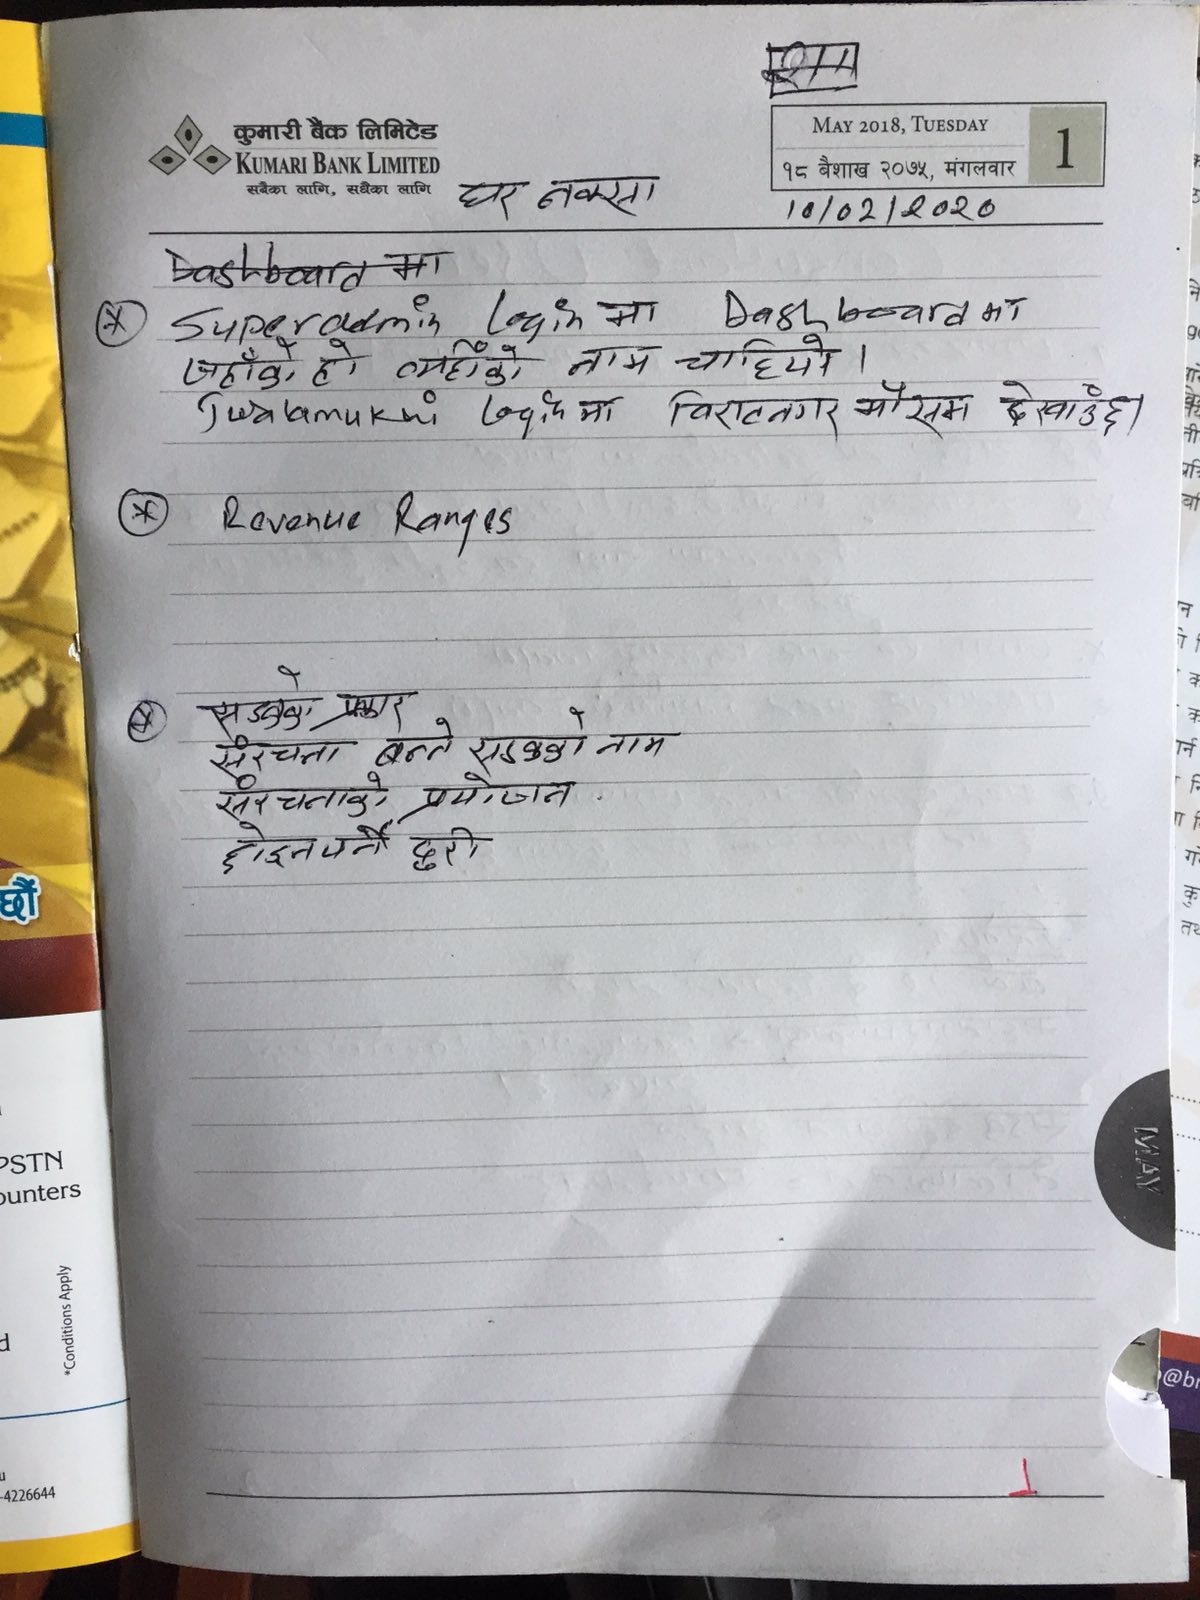 कुमारी बैंक लिमिटेड
KUMARI BANK LIMITED
सबैका लागि, सधैका लागि
MAY 2018, TUESDAY
१८ बैशाख २०७५, मंगलवार
1
घर नक्सा
10/02/2020
Dashboard मा
* Superadmin Login मा Dashboard मा
जहाँको हो त्यहाँको नाम चाहियो।
Jwalamukhi Login मा विराटनगर मौसम देखाउँछ।
* Revenue Ranges
* सडकको प्रकार
संरचना बन्ने सडकको नाम
संरचनाको प्रयोजन
छोड्नुपर्ने दुरी
MAY
1
छौं
PSTN
ounters
*Conditions Apply
d
u
-4226644
@br